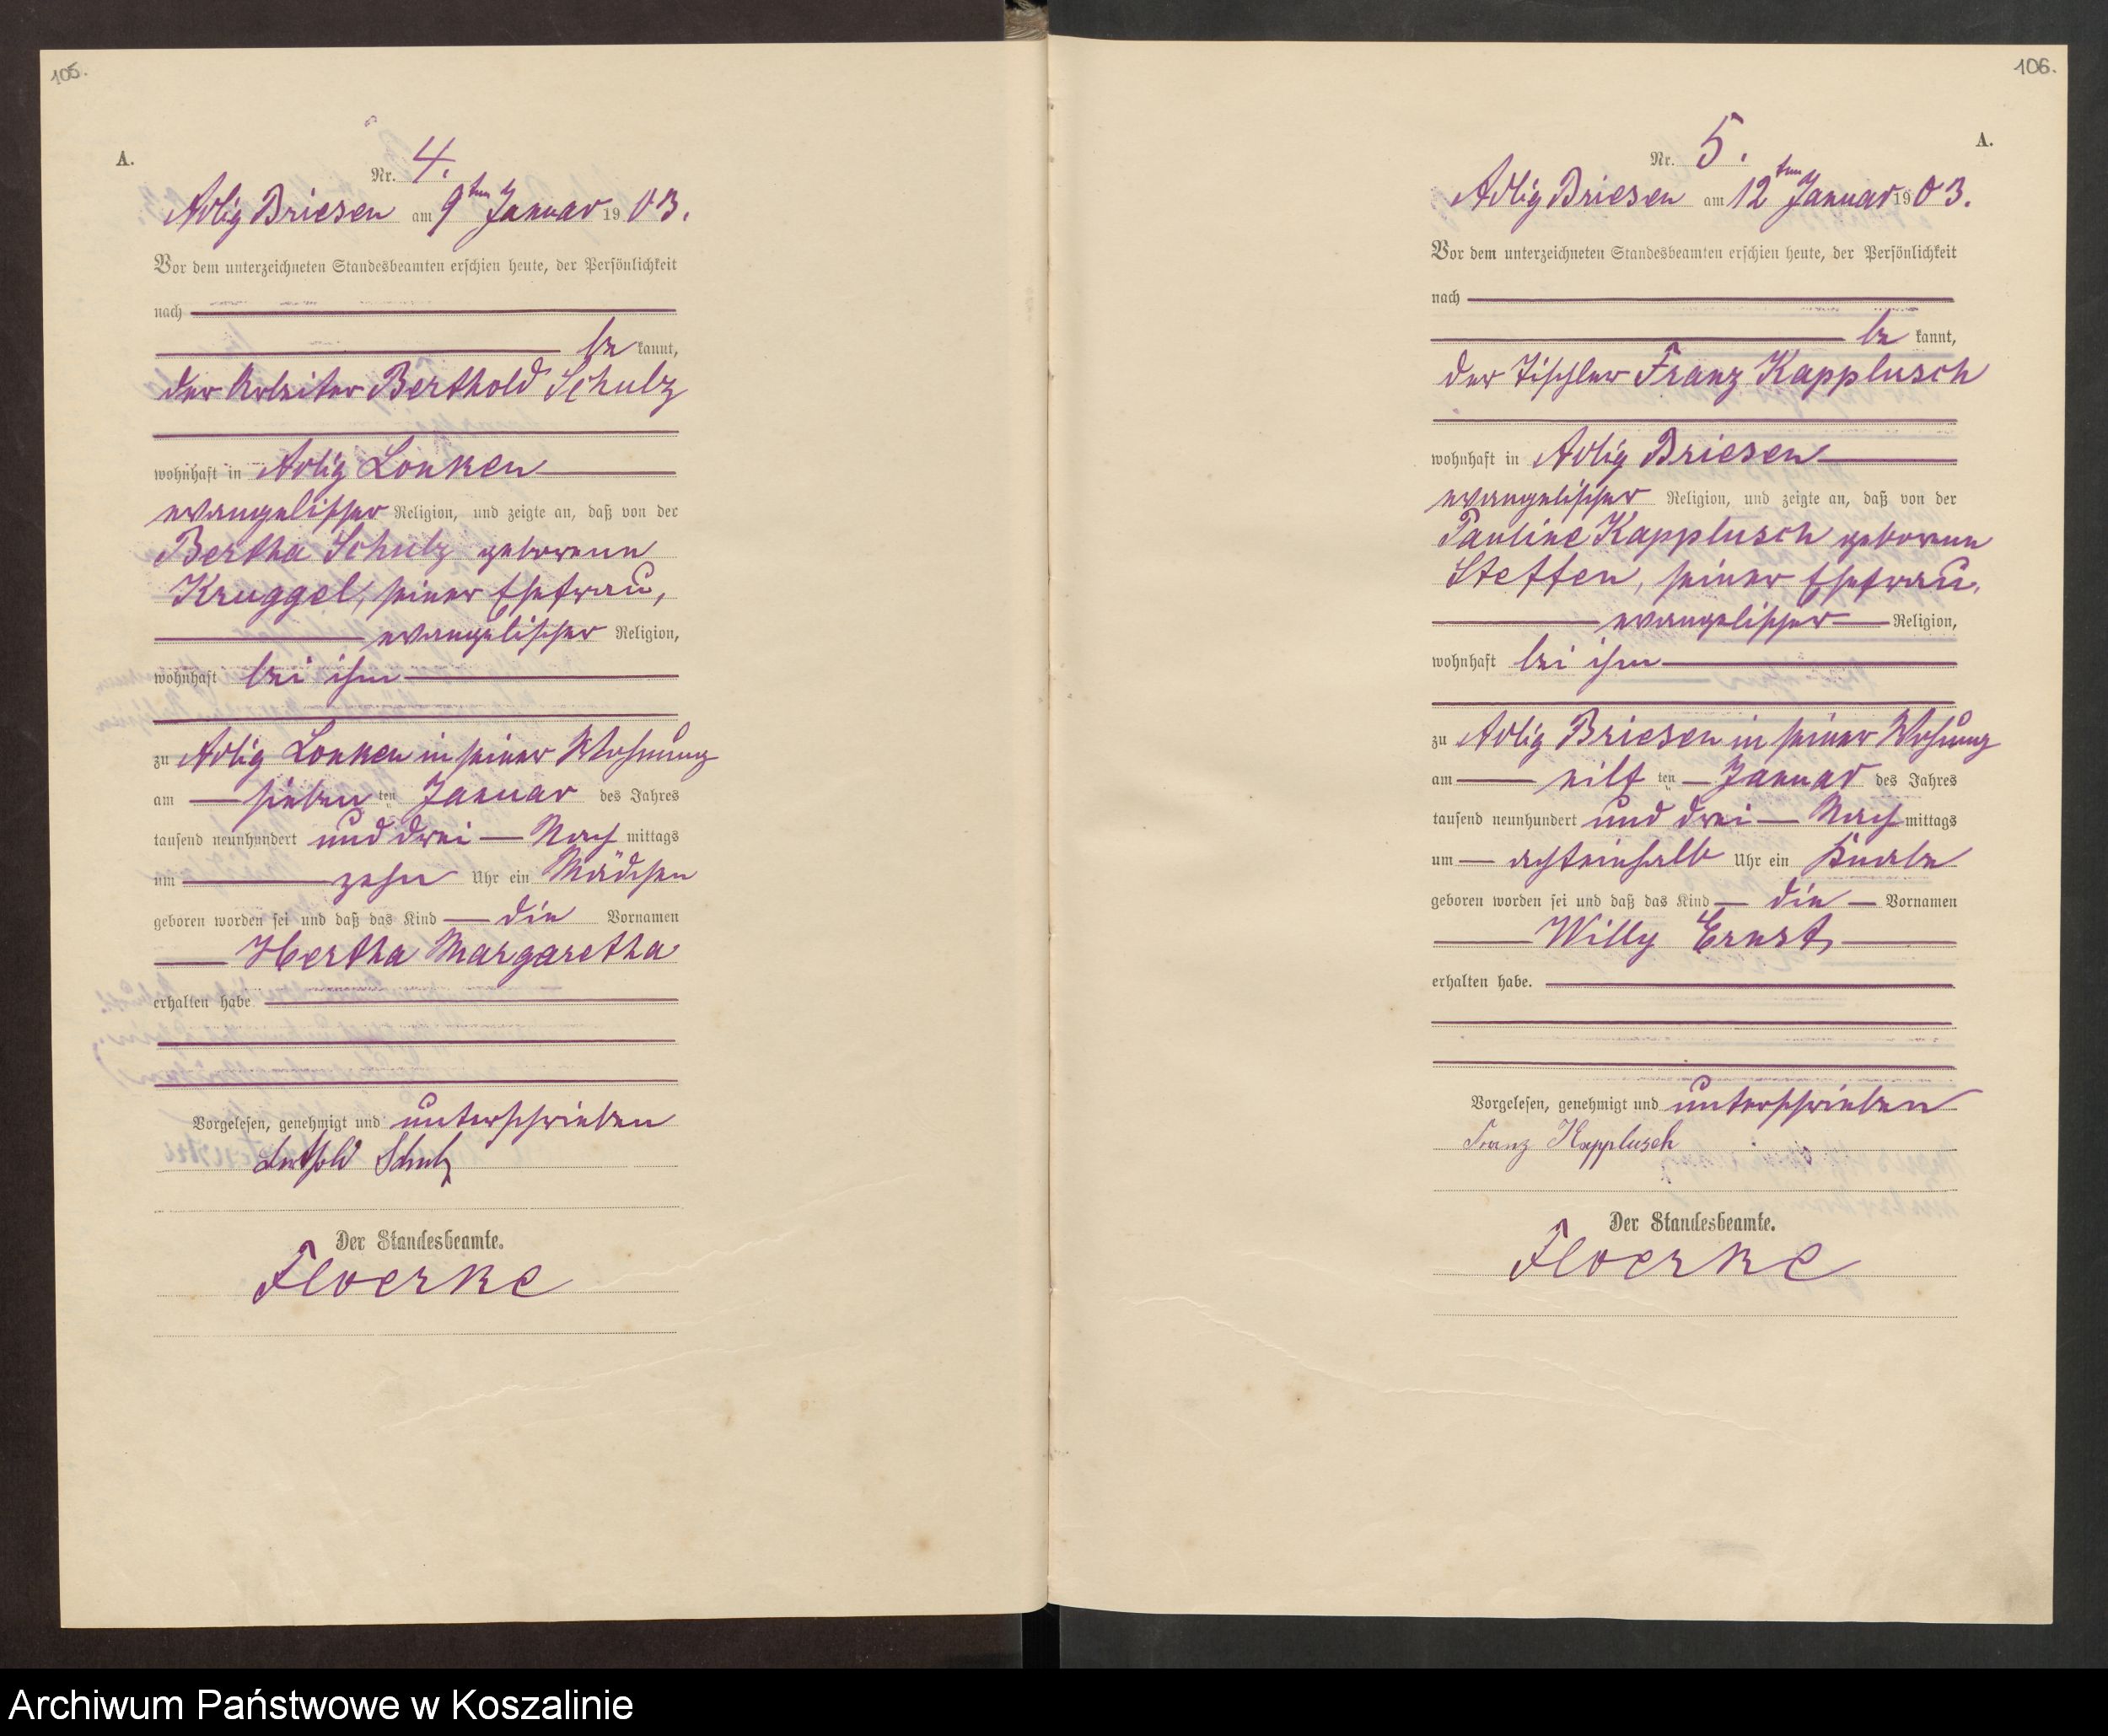 105.
A.
Nr. 4.
Adlig Briesen am 9ten Januar 1903.
Vor dem unterzeichneten Standesbeamten erschien heute, der Persönlichkeit
nach
be kannt,
der Arbeiter Berthold Schulz
wohnhaft in Adlig Lonken
evangelischer Religion, und zeigte an, daß von der
Bertha Schulz geborenen
Kruggel, seiner Ehefrau,
evangelischer Religion,
wohnhaft bei ihm
zu Adlig Lonken in seiner Wohnung
am sieben ten Januar des Jahres
tausend neunhundert und drei Nach mittags
um zehn Uhr ein Mädchen
geboren worden sei und daß das Kind die Vornamen
Hertha Margaretha
erhalten habe
Vorgelesen, genehmigt und unterschrieben
Berthold Schulz
Der Standesbeamte.
Floerke
106.
A.
Nr. 5.
Adlig Briesen am 12ten Januar 1903.
Vor dem unterzeichneten Standesbeamten erschien heute, der Persönlichkeit
nach
be kannt,
der Tischler Franz Kapplusch
wohnhaft in Adlig Briesen
evangelischer Religion, und zeigte an, daß von der
Pauline Kapplusch geborenen
Steffen, seiner Ehefrau,
evangelischer Religion,
wohnhaft bei ihm
zu Adlig Briesen in seiner Wohnung
am eilf ten Januar des Jahres
tausend neunhundert und drei Nach mittags
um achteinhalb Uhr ein Knabe
geboren worden sei und daß das Kind die Vornamen
Willy Ernst
erhalten habe.
Vorgelesen, genehmigt und unterschrieben
Franz Kapplusch
Der Standesbeamte.
Floerke
Archiwum Państwowe w Koszalinie